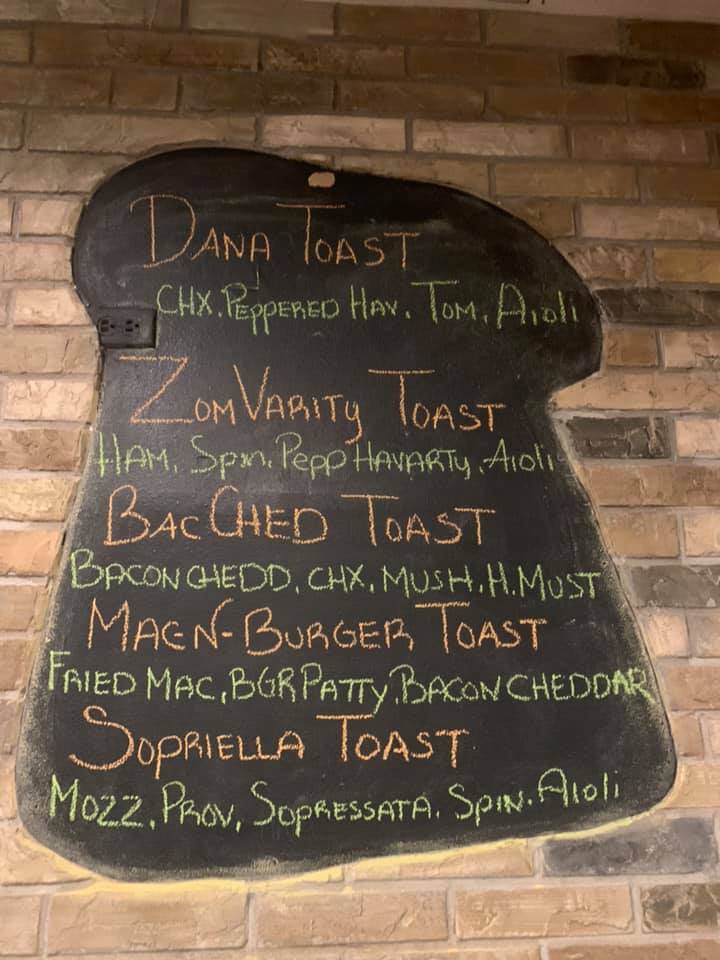 DANA TOAST
CHX. PEPPERED HAV. TOM. Aioli
ZOMVARITY TOAST
HAM. Spin. Pepp HAVARTY. Aioli
BACCHED TOAST
BACON CHEDD. CHX. MUSH. H. MUST
MACN-BURGER TOAST
FRIED MAC, BGR PATTY, BACON CHEDDAR
SOPRIELLA TOAST
MOZZ. PROV, SOPRESSATA. SPIN. Aioli